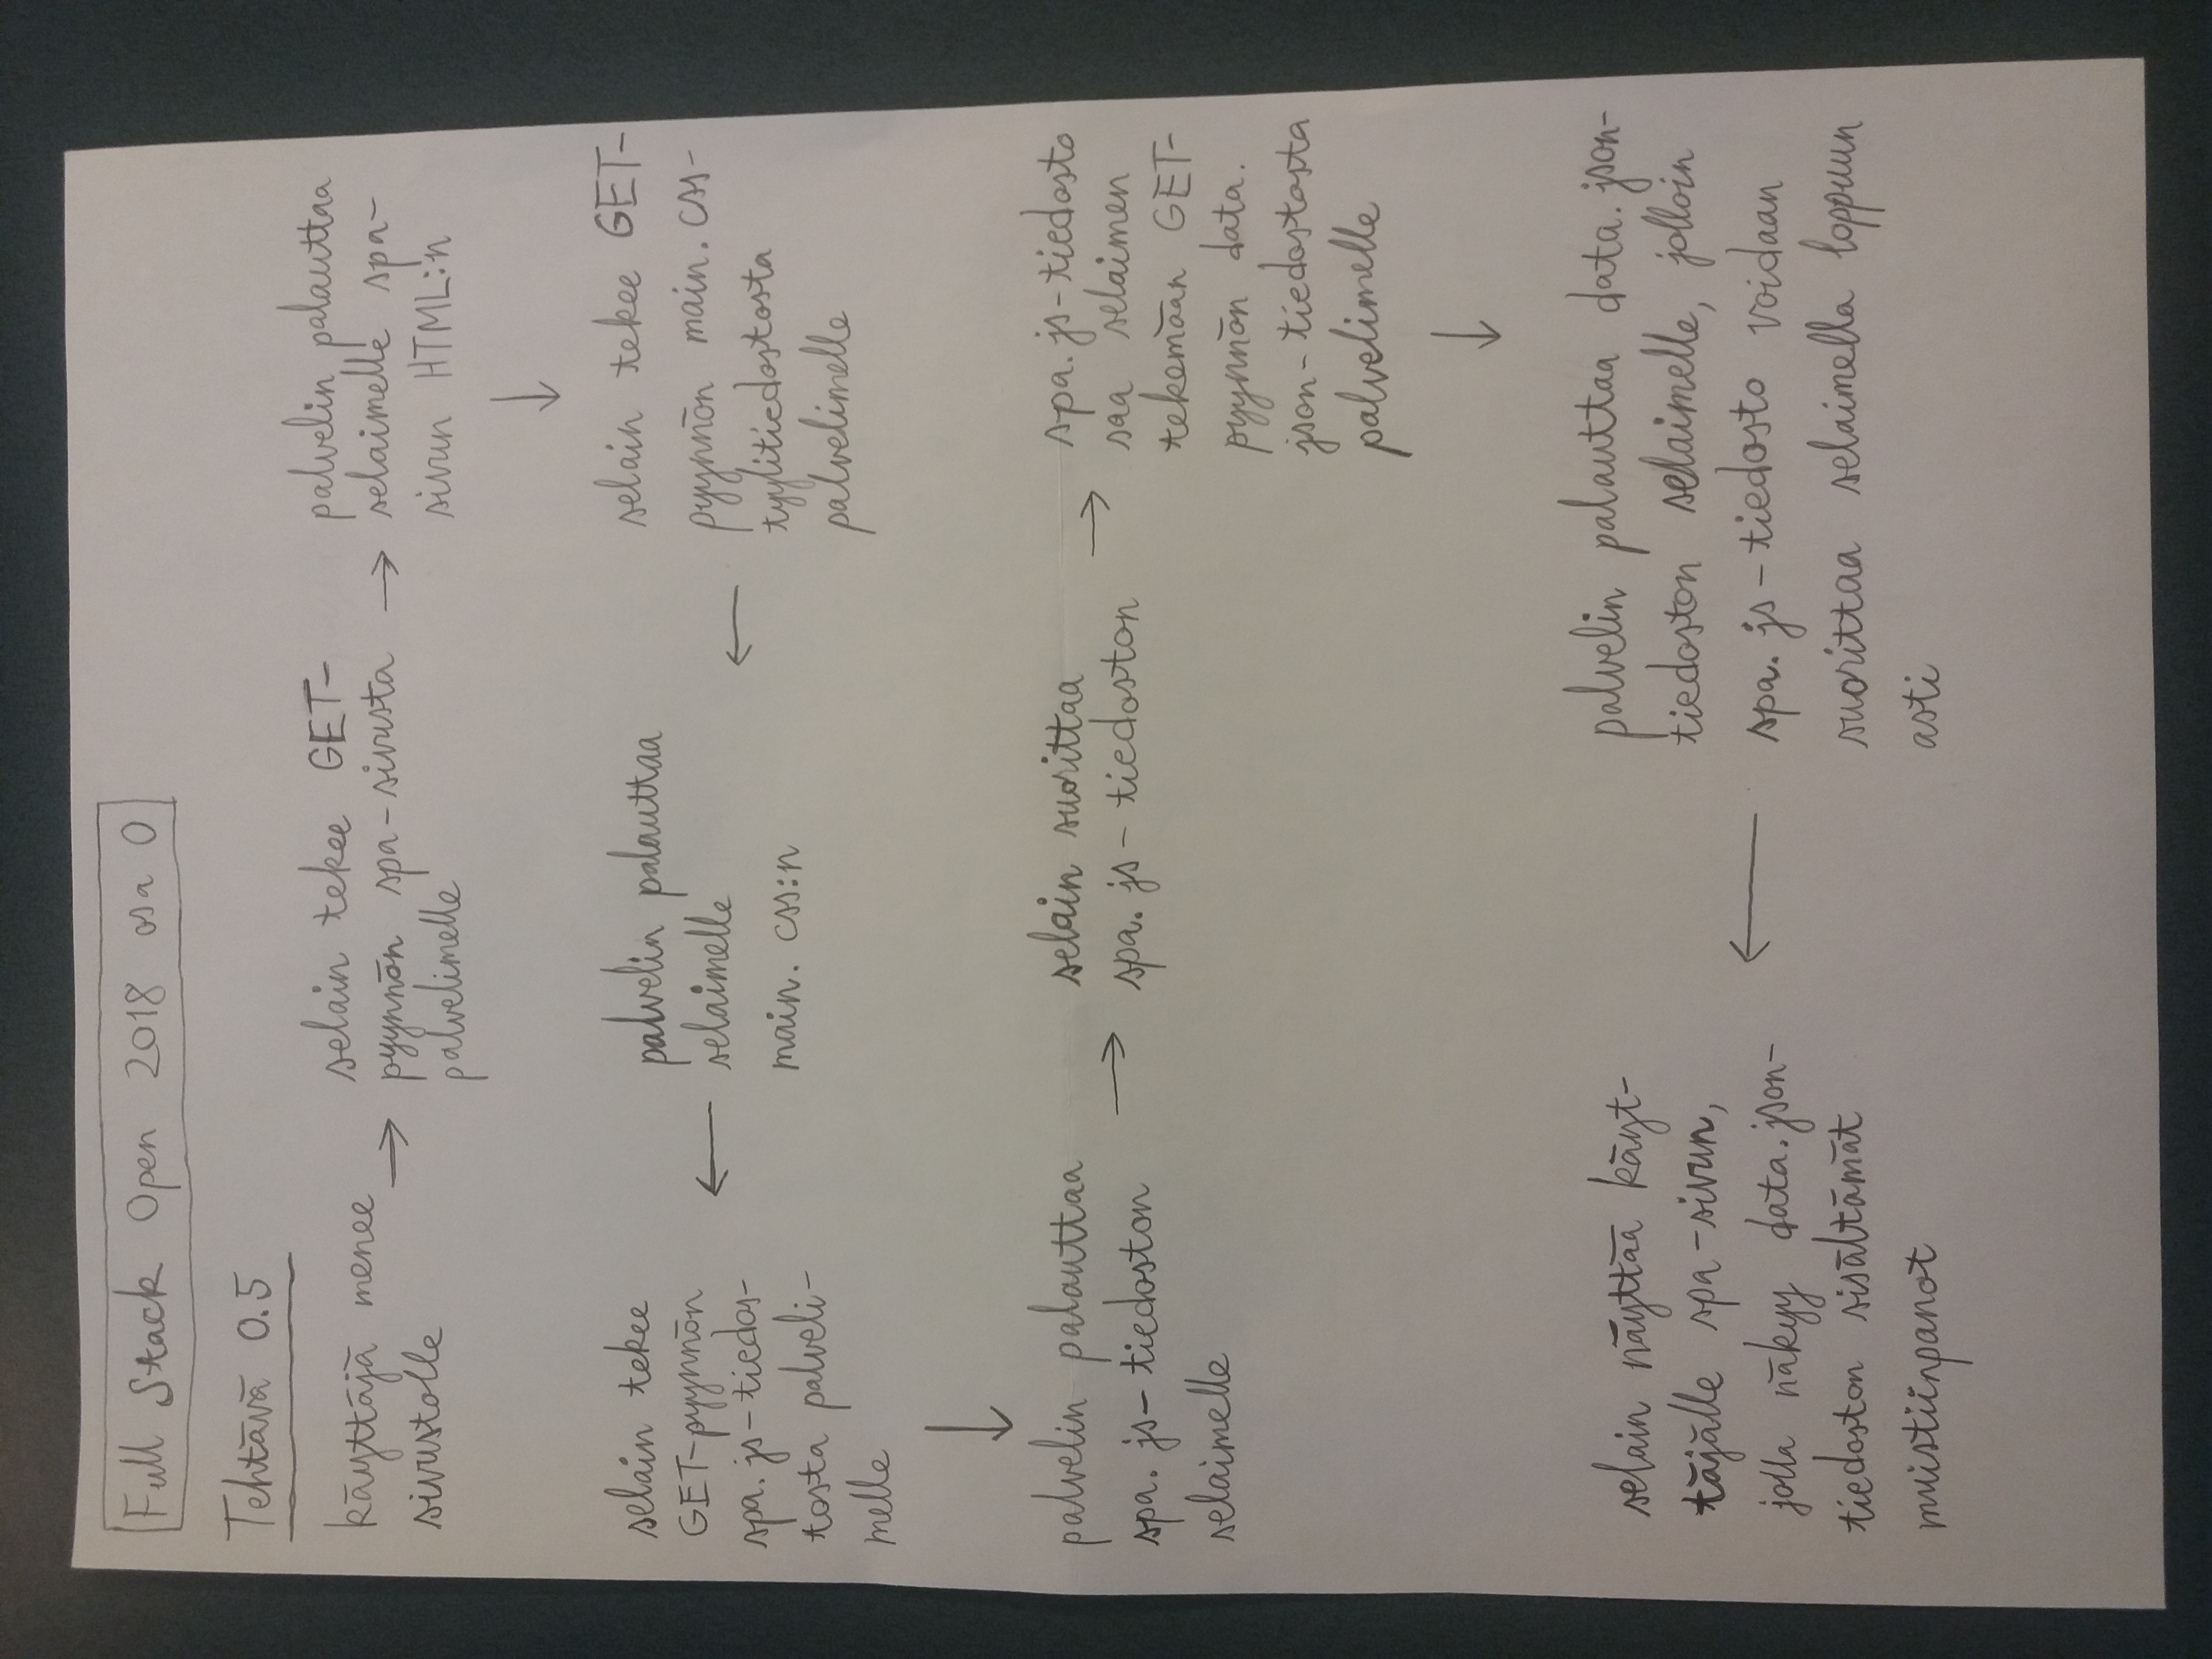 Full Stack Open 2018 osa 0
Tehtävä 0.5
käyttäjä menee
sivustolle
selain tekee GET-
pyynnön spa-sivusta
palvelimelle
palvelin palauttaa
selaimelle spa-
sivun HTML:n
selain tekee GET-
pyynnön main.css-
tyylitiedostosta
palvelimelle
palvelin palauttaa
selaimelle
main.css:n
selain tekee
GET-pyynnön
spa.js-tiedos-
tosta palveli-
melle
palvelin palauttaa
spa.js-tiedoston
selaimelle
selain suorittaa
spa.js-tiedoston
spa.js-tiedosto
saa selaimen
tekemään GET-
pyynnön data.
json-tiedostosta
palvelimelle
palvelin palauttaa data.json-
tiedoston selaimelle, jolloin
spa.js-tiedosto voidaan
suorittaa selaimella loppuun
asti
selain näyttää käyt-
täjälle spa-sivun,
jolla näkyy data.json-
tiedoston sisältämät
muistiinpanot